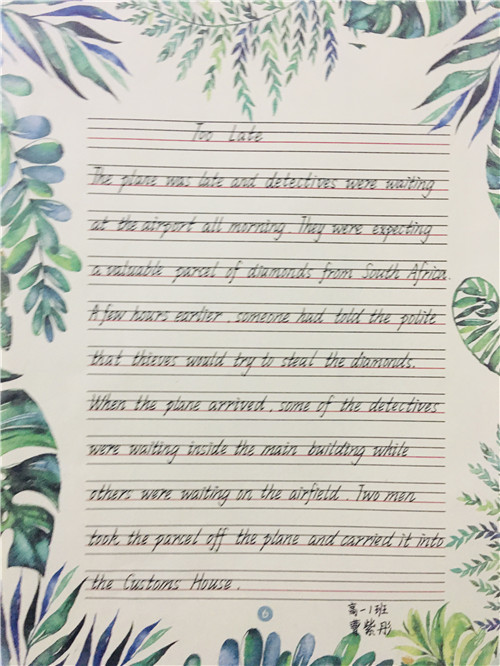 Too Late
The plane was late and detectives were waiting
at the airport all morning. They were expecting
a valuable parcel of diamonds from South Africa.
A few hours earlier, someone had told the polite
that thieves would try to steal the diamonds.
When the plane arrived, some of the detectives
were waiting inside the main building while
others were waiting on the airfield. Two men
took the parcel off the plane and carried it into
the Customs House.
6
高一1班
曹紫彤